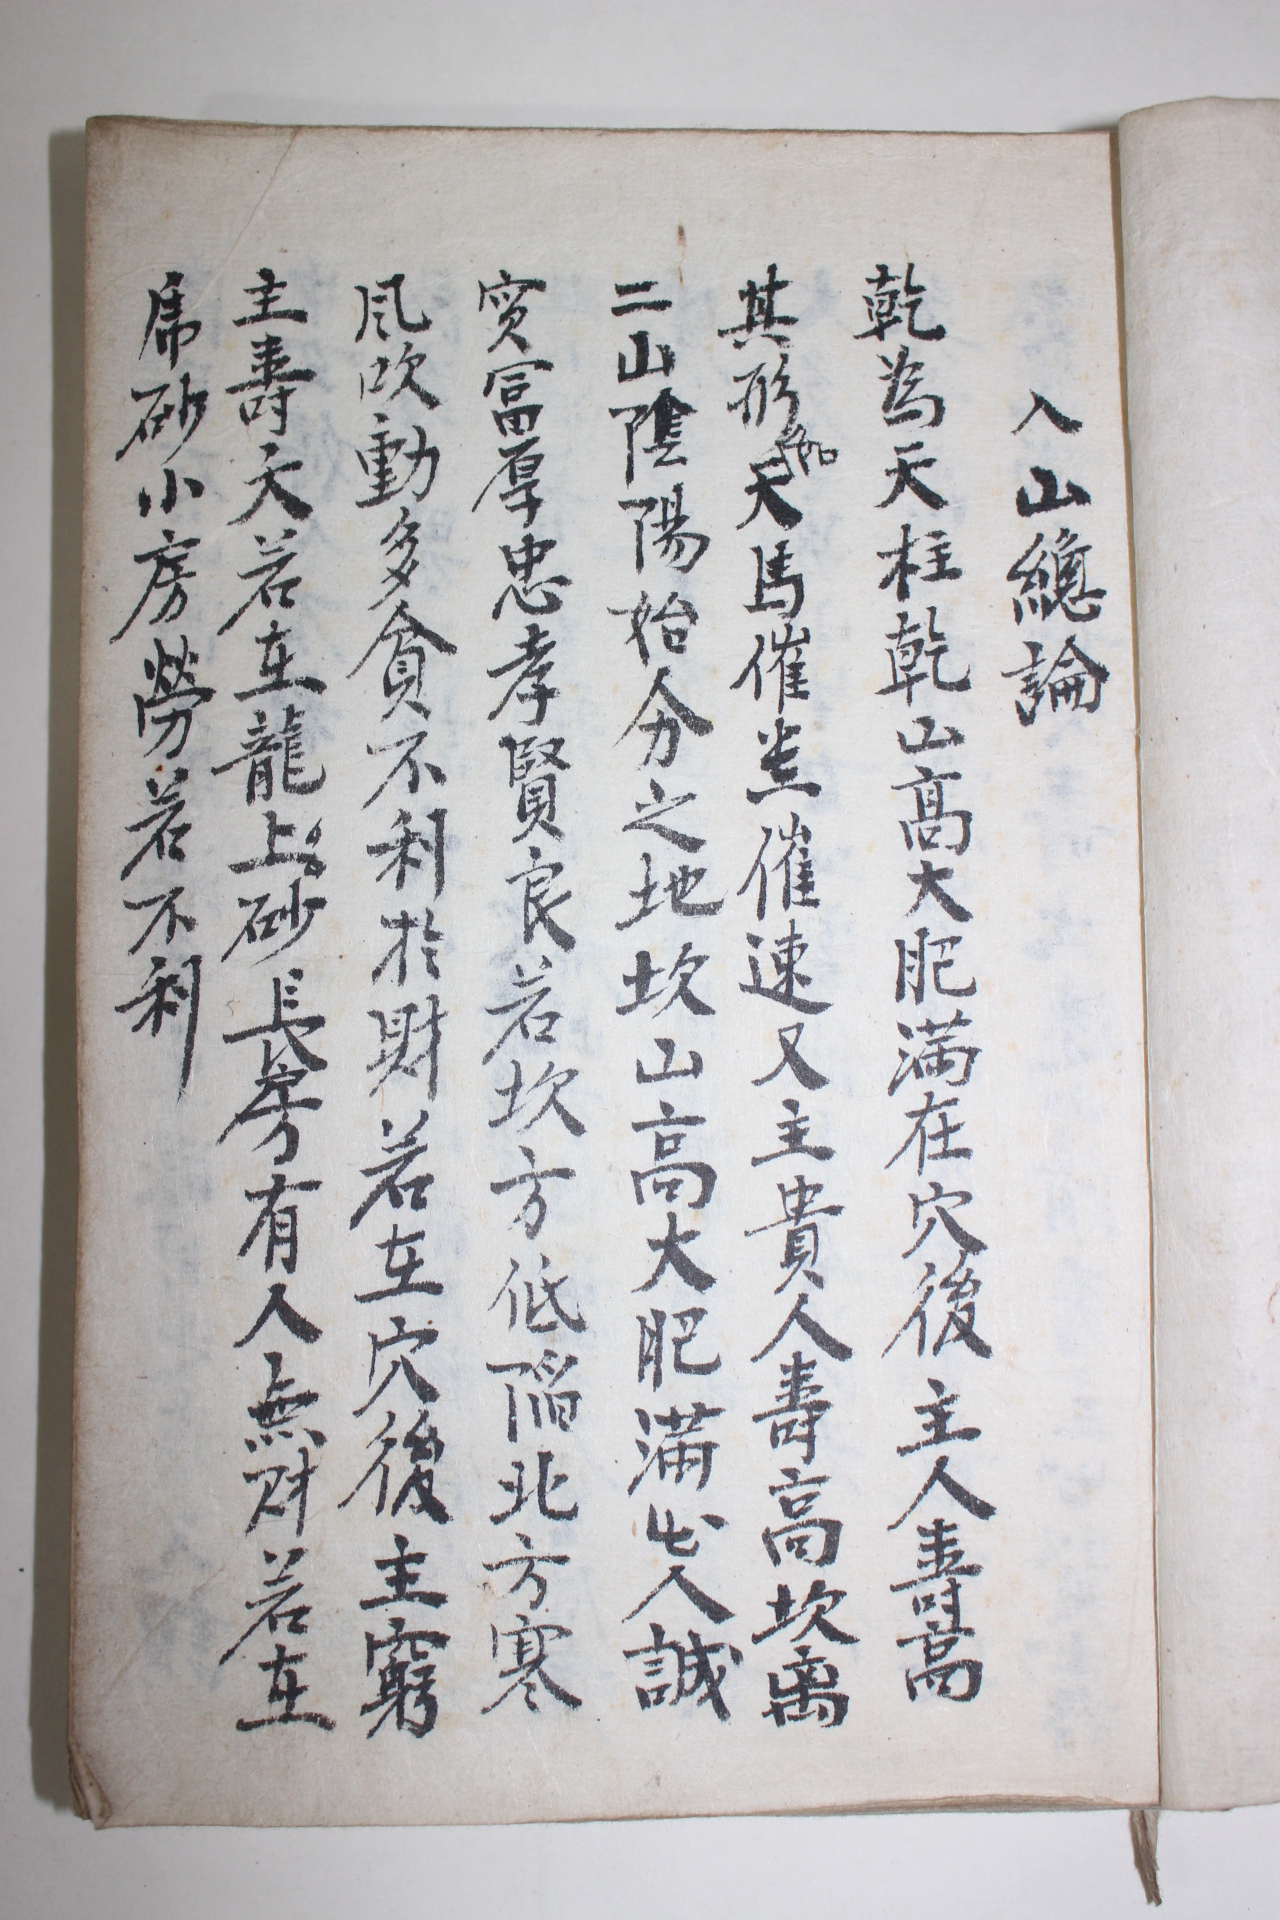 入山總論
乾為天柱乾山高大肥満在穴後主人壽高
其形如天馬催党催速又主貴人壽高坎离
二山陰陽始分之地坎山高大肥滿出人誠
实富厚忠孝賢良若坎方低陷北方寒
風吹動多貪不利於財若在穴後主窮
主壽夭若在龍上砂長房有人無財若在
虎砂小房勞若不利